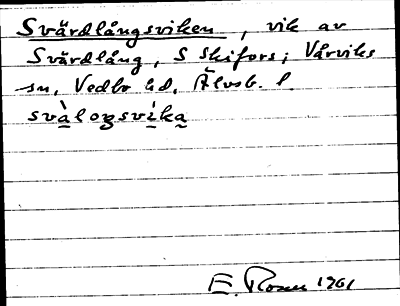 Svärdlångsviken, vik av
Svärdlång, S Skifors; Vårviks
sn, Vedbo hd, Älvsb. l.
svàlogsvíka
E. Rosen 1961